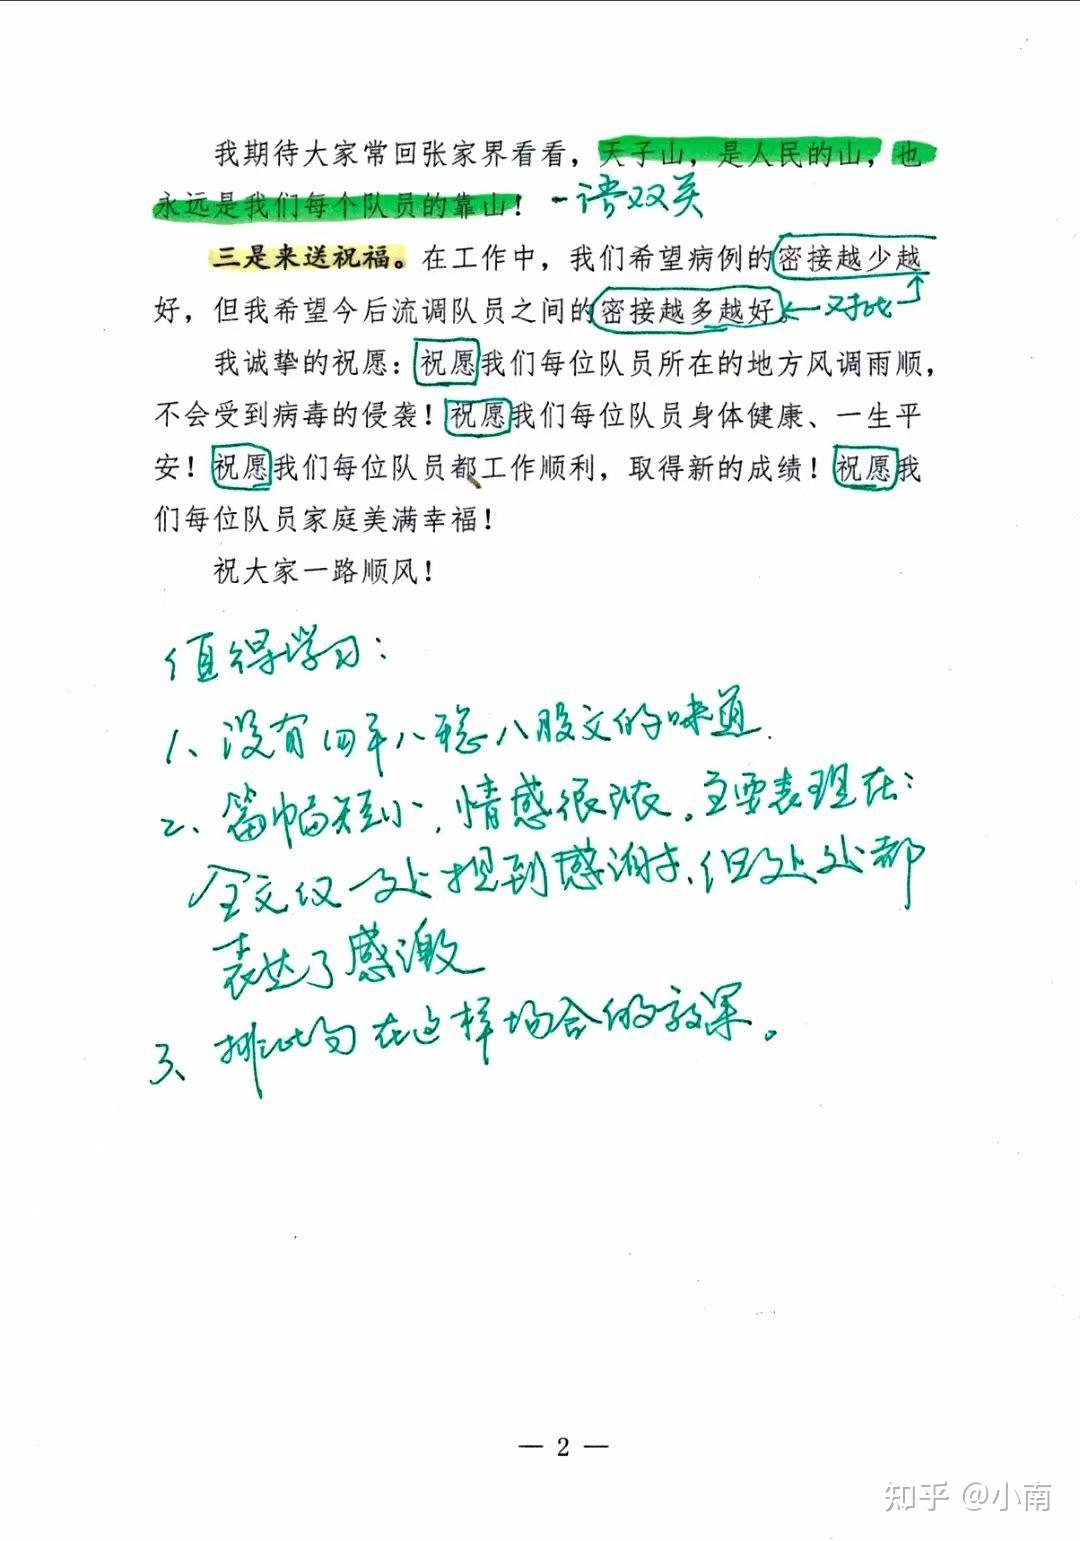 我期待大家常回张家界看看，天子山，是人民的山，也
永远是我们每个队员的靠山！ 一语双关
三是来送祝福。在工作中，我们希望病例的密接越少越
好，但我希望今后流调队员之间的密接越多越好。 对比
我诚挚的祝愿：祝愿我们每位队员所在的地方风调雨顺，
不会受到病毒的侵袭！祝愿我们每位队员身体健康、一生平
安！祝愿我们每位队员都工作顺利，取得新的成绩！祝愿我
们每位队员家庭美满幸福！
祝大家一路顺风！
值得学习：
1、没有四平八稳八股文的味道.
2、篇幅短小，情感很浓。主要表现在：
全文仅一处提到感谢，但处处都
表达了感激
3、排比句在这样场合的效果。
— 2 —
知乎 @小南